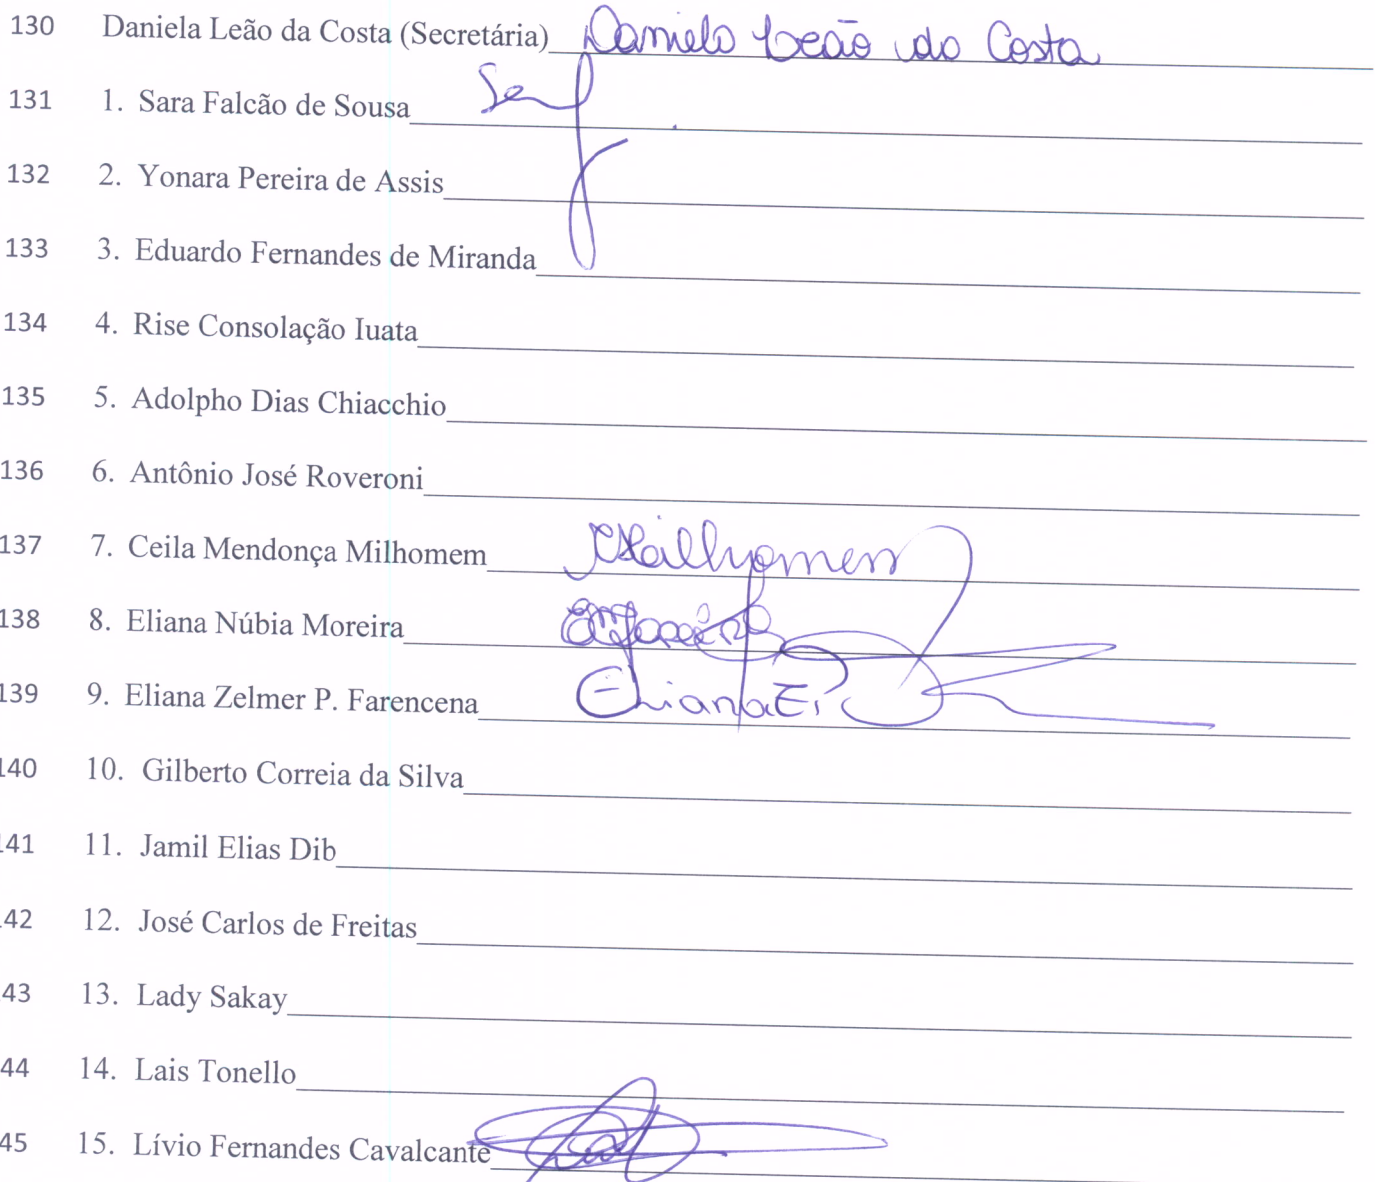 130 Daniela Leão da Costa (Secretária) Daniela Leão da Costa
131 1. Sara Falcão de Sousa
132 2. Yonara Pereira de Assis
133 3. Eduardo Fernandes de Miranda
134 4. Rise Consolação Iuata
135 5. Adolpho Dias Chiacchio
136 6. Antônio José Roveroni
137 7. Ceila Mendonça Milhomem
138 8. Eliana Núbia Moreira
139 9. Eliana Zelmer P. Farencena
140 10. Gilberto Correia da Silva
141 11. Jamil Elias Dib
42 12. José Carlos de Freitas
43 13. Lady Sakay
44 14. Lais Tonello
45 15. Lívio Fernandes Cavalcante